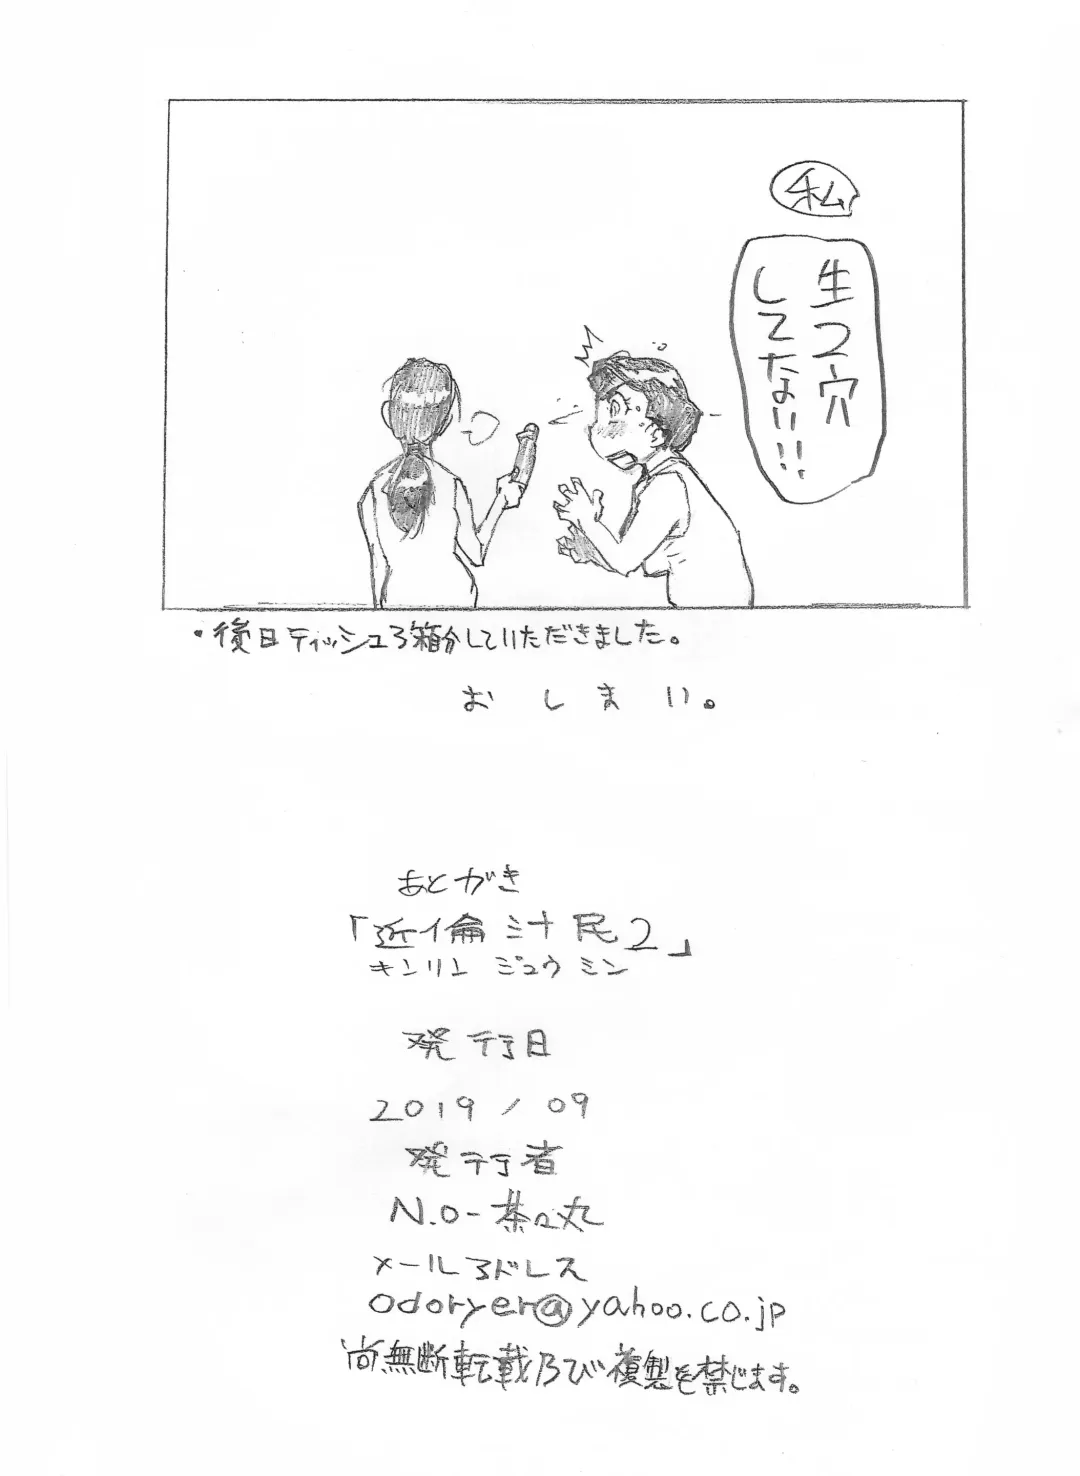 私
生2穴
してない!!
・後日ティッシュ3箱分していただきました。
おしまい。
あとがき
「近イ倫汁民2」
キンリン ジュウ ミン
発行日
2019/09
発行者
N.O-茶々丸
メールアドレス
odoryer@yahoo.co.jp
尚無断転載及び複製を禁じます。